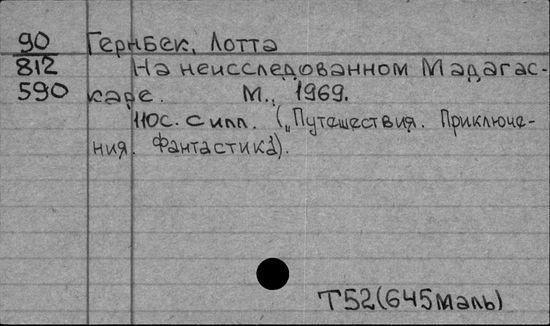 90 Гернбек, Лотта
812 На неисследованном Мадагас-
590 каре. М., 1969.
110с. с илл. („Путешествия. Приключе-
ния. Фантастика).
Т52(645маль)